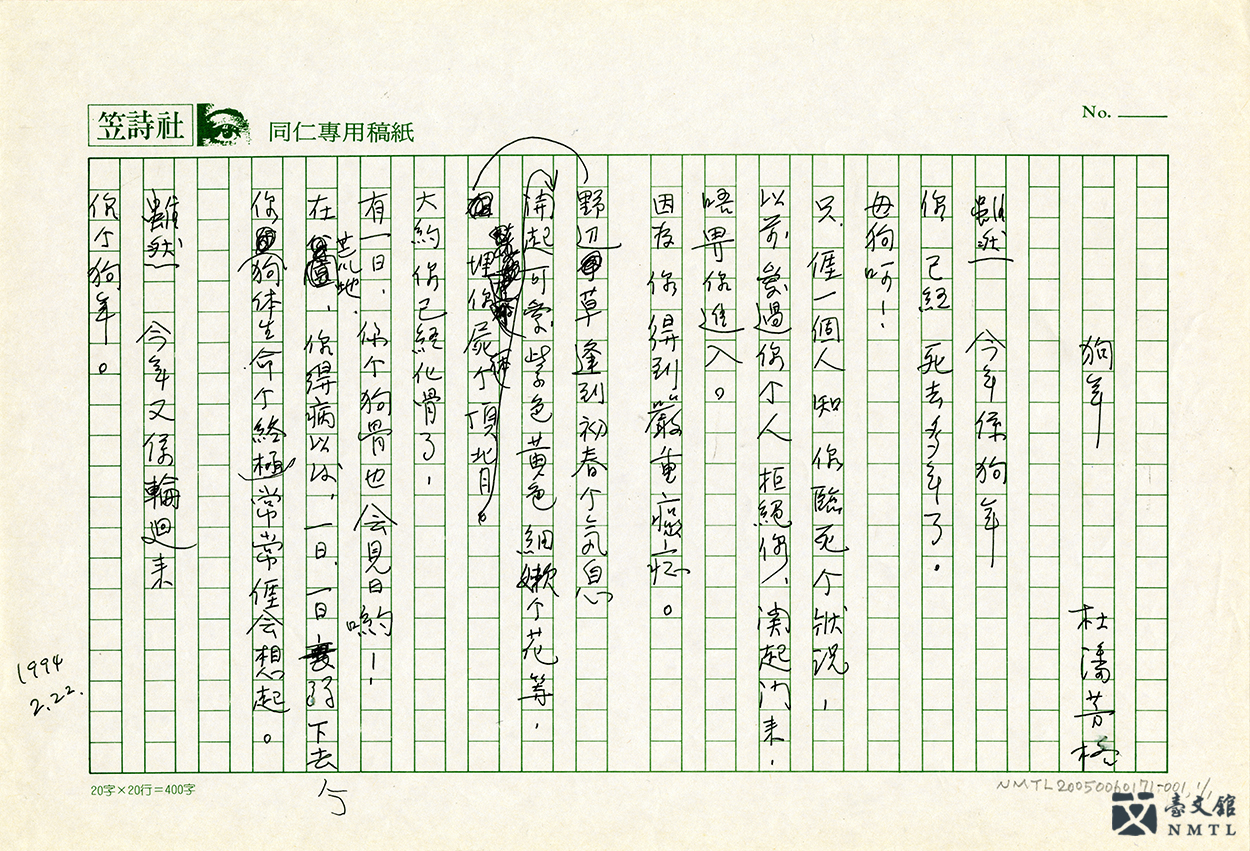 笠詩社
同仁專用稿紙
No.
狗年
杜潘芳格
雖然 今年係狗年
你已經 死去多年了。
母狗呵！
只,𠊎一個人知 你臨死个狀況,
以前愛過你个人 拒絕你、関起门来,
唔畀你進入。
因為你得到嚴重癌症。
野辺草 逢到初春个氣息
開起可愛紫色黃色 細嫩个花等,
埋你屍体个頂背。
大約你已經化骨了,
有一日, 你个狗骨也会見日喲！
在荒地, 你得病以後, 一日,一日衰弱下去个
你狗体生命个終極 常常𠊎会想起。
雖然 今年又係輪迴来
你个狗年。
1994
2.22.
20字×20行=400字
NMTL20050060171-001, 1/1
臺文館
NMTL